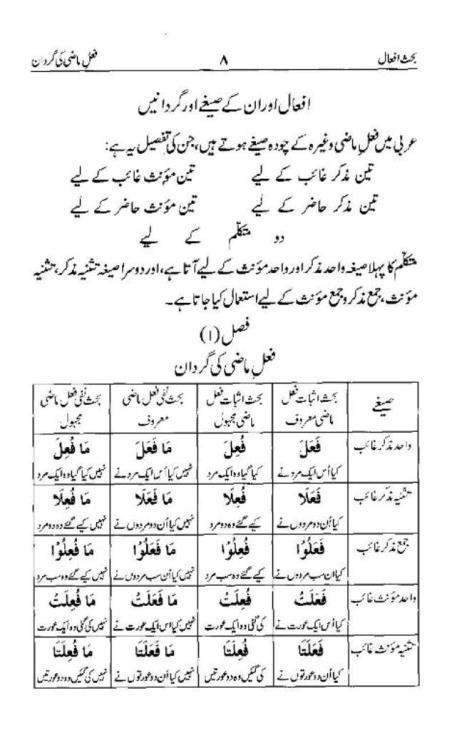 بحث افعال ۸ فعل ماضی کی گردان
افعال اور ان کے صیغے اور گردانیں
عربی میں فعل ماضی وغیرہ کے چودہ صیغے ہوتے ہیں، جن کی تفصیل یہ ہے:
تین مذکر غائب کے لیے تین مؤنث غائب کے لیے
تین مذکر حاضر کے لیے تین مؤنث حاضر کے لیے
دو متکلّم کے لیے
متکلّم کا پہلا صیغہ واحد مذکر اور واحد مؤنث کے لیے آتا ہے، اور دوسرا صیغہ تثنیہ مذکر، تثنیہ
مؤنث، جمع مذکر و جمع مؤنث کے لیے استعمال کیا جاتا ہے۔
فصل (۱)
فعل ماضی کی گردان
صیغے بحث اثبات فعل بحث اثبات فعل بحث نفی فعل ماضی بحث نفی فعل ماضی
ماضی معروف ماضی مجہول معروف مجہول
واحد مذکر غائب فَعَلَ فُعِلَ مَا فَعَلَ مَا فُعِلَ
کیا اُس ایک مرد نے کیا گیا وہ ایک مرد نہیں کیا اُس ایک مرد نے نہیں کیا گیا وہ ایک مرد
تثنیہ مذکر غائب فَعَلَا فُعِلَا مَا فَعَلَا مَا فُعِلَا
کیا اُن دو مردوں نے کیے گئے وہ دو مرد نہیں کیا اُن دو مردوں نے نہیں کیے گئے وہ دو مرد
جمع مذکر غائب فَعَلُوْا فُعِلُوْا مَا فَعَلُوْا مَا فُعِلُوْا
کیا ان سب مردوں نے کیے گئے وہ سب مرد نہیں کیا اُن سب مردوں نے نہیں کیے گئے وہ سب مرد
واحد مؤنث غائب فَعَلَتْ فُعِلَتْ مَا فَعَلَتْ مَا فُعِلَتْ
کیا اُس ایک عورت نے کی گئی وہ ایک عورت نہیں کیا اس ایک عورت نے نہیں کی گئی وہ ایک عورت
تثنیہ مؤنث غائب فَعَلَتَا فُعِلَتَا مَا فَعَلَتَا مَا فُعِلَتَا
کیا اُن دو عورتوں نے کی گئیں وہ دو عورتیں نہیں کیا اُن دو عورتوں نے نہیں کی گئیں وہ دو عورتیں